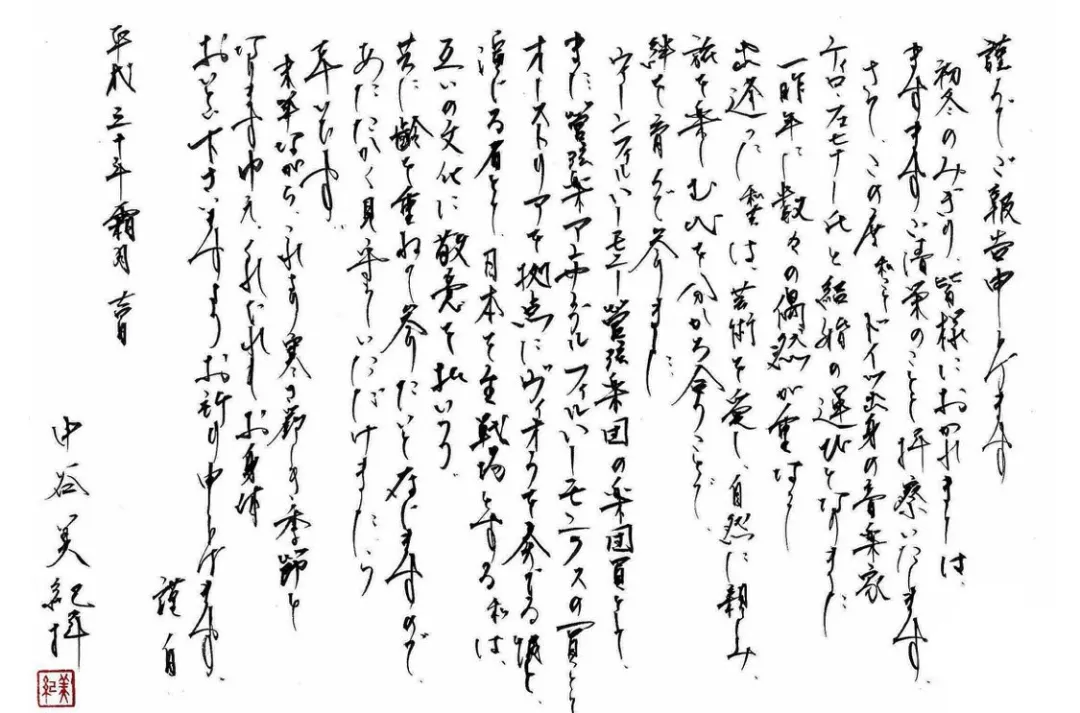 謹んでご報告申し上げます
初冬のみぎり、皆様におかれましては、
ますますご清栄のことと拝察いたします。
さて、この度 私こと ドイツ出身の音楽家
ティロ・フェヒナー氏と結婚の運びとなりました
一昨年に数々の偶然が重なり
出逢った私共は、芸術を愛し、自然に親しみ
旅を楽しむ心を分かち合うことで、
絆を育んで参りました。
ウィーンフィルハーモニー管弦楽団の楽団員として、
また管弦楽アンサンブル フィルハーモニクスの一員として
オーストリアを拠点にヴィオラを奏でる彼と、
演じる者として、日本を主戦場とする私は、
互いの文化に敬意を払いつつ、
共に齢を重ねて参りたいと存じますので、
あたたかく見守っていただけましたら
幸いです。
末筆ながら、これより寒さ厳しき季節と
なりますゆえ、くれぐれもお身体
おいとい下さいますようお祈り申し上げます。
謹白
平成三十年霜月 吉日
中谷美紀 拝
美紀